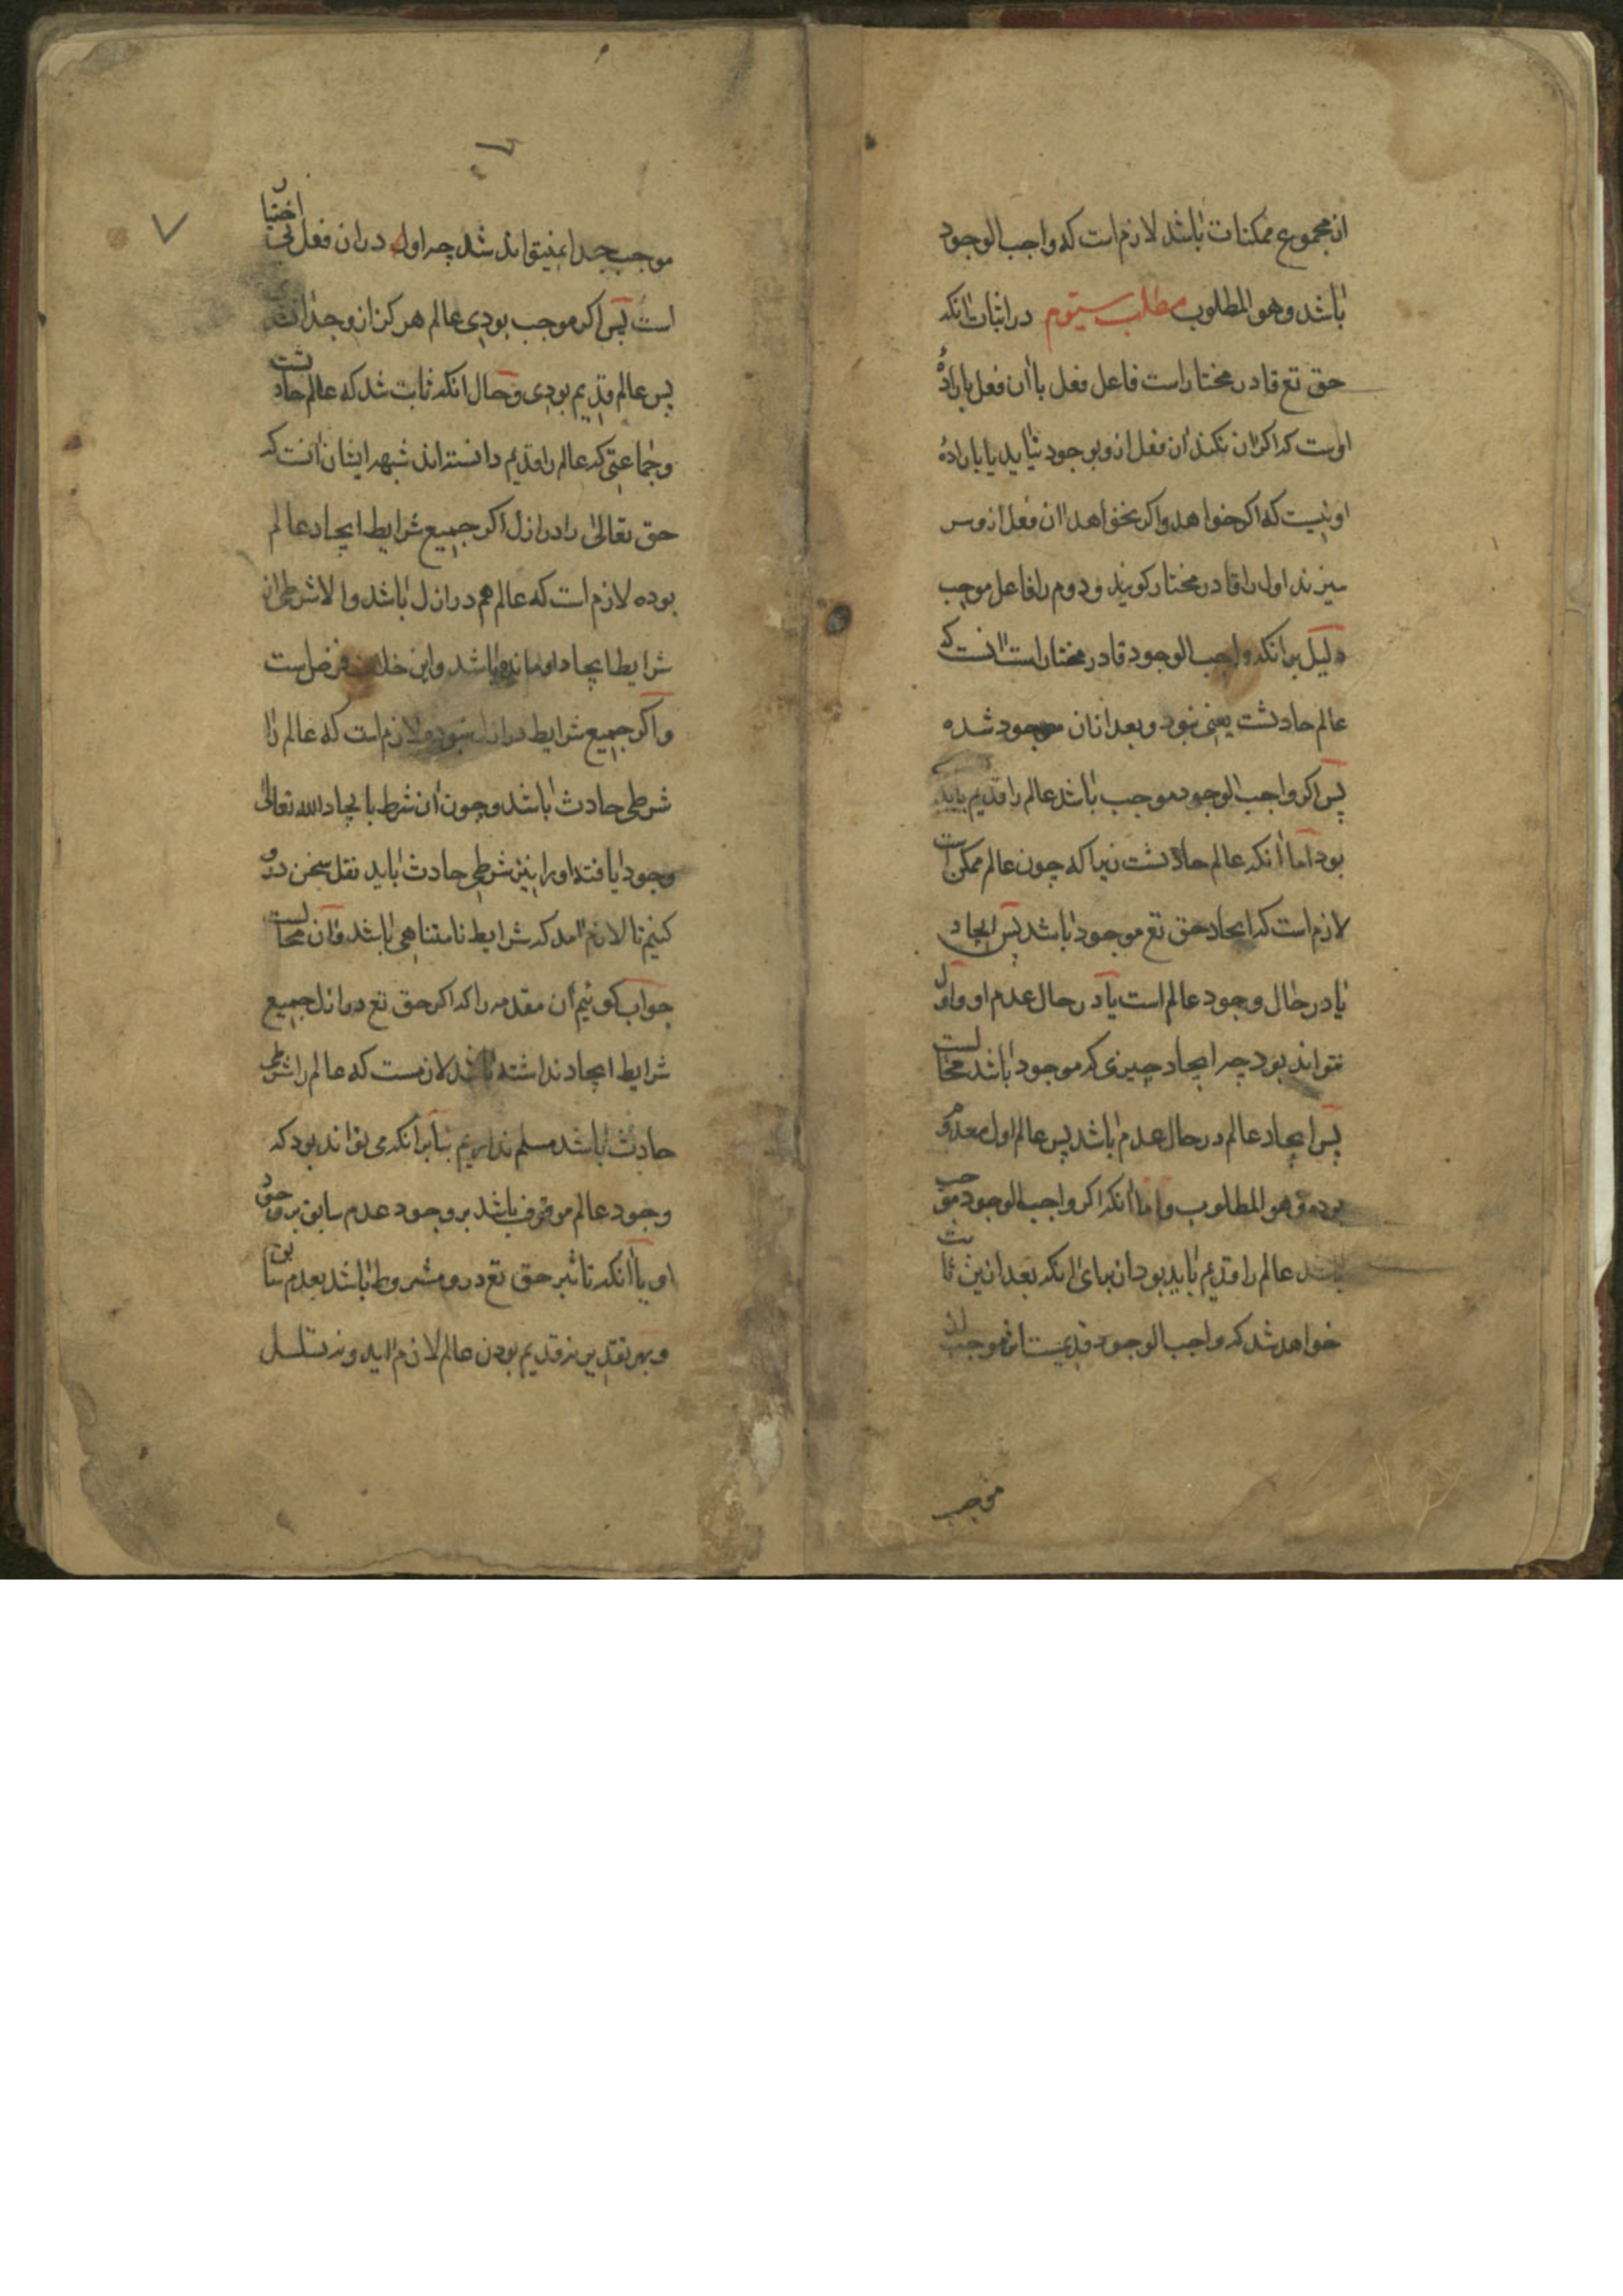 از مجموع ممکنات باشد لازم است که واجب الوجود
باشد و هو المطلوب مطلب سیّوم در اثبات انکه
حق تع قادر مختار است فاعل فعل با ان فعل بارادهٔ
اوست که اگر ان نکند ان فعل ازو بوجود نیاید یا بارادهٔ
او نیست که اگر خواهد و اگر نخواهد ان فعل ازو سر
میزند اول را قادر مختار کویند و دوم را فاعل موجب
دلیل بر انکه واجب الوجود قادر مختار است انست که
عالم حادثست یعنی نبود و بعد از ان موجود شده
پس اکر واجب الوجود موجب باشد عالم را قدیم باید
بود اما انکه عالم حادثست زیرا که چون عالم ممکن است
لازم است که ایجاد حق تع موجود باشد پس ایجاد
یا در حال وجود عالم است یا در حال عدم او و اول
نتواند بود چه ایجاد چیزی که موجود باشد محالست
پس ایجاد عالم در حال عدم باشد پس عالم اول معدوم
بوده و هو المطلوب و اما انکه اکر واجب الوجود موجب
باشد عالم را قدیم باید بود از برای انکه بعد ازین ثابت
خواهد شد که واجب الوجود قدیمست اثر موجب از
موجب
موجب جدا نمیتواند شد چه او را در ان فعل نی اختیار
است پس اکر موجب بودی عالم هرکز از و جدا نشدی
پس عالم قدیم بودی و حال انکه ثابت شد که عالم حادثست
و جماعتی که عالم را قدیم دانسته اند شبهه ایشان انست که
حق تعالی را در ازل اکر جمیع شرایط ایجاد عالم
بوده لازم است که عالم هم در ازل باشد و الا شرطی از
شرایط ایجاد او مانده باشد و این خلاف فرض است
و اکر جمیع شرایط در ازل نبوده لازم است که عالم را
شرطی حادث باشد و چون ان شرط بایجاد الله تعالی
وجود یافته او را نیز شرطی حادث باید نقل سخن درو
کنیم تا لازم امد که شرایط نامتناهی باشد و ان محالست
جواب کوئیم ان مقدمه را که اکر حق تع در ازل جمیع
شرایط ایجاد نداشته باشد لازمست که عالم را شرطی
حادث باشد مسلم نداریم بنابر انکه می تواند بود که
وجود عالم موقوف باشد بر وجود عدم سابق بر وجود
او یا انکه تاثیر حق تع درو مشروط باشد بعدم سابق
و بهر تقدیر نه قدیم بودن عالم لازم اید و نه تسلسل